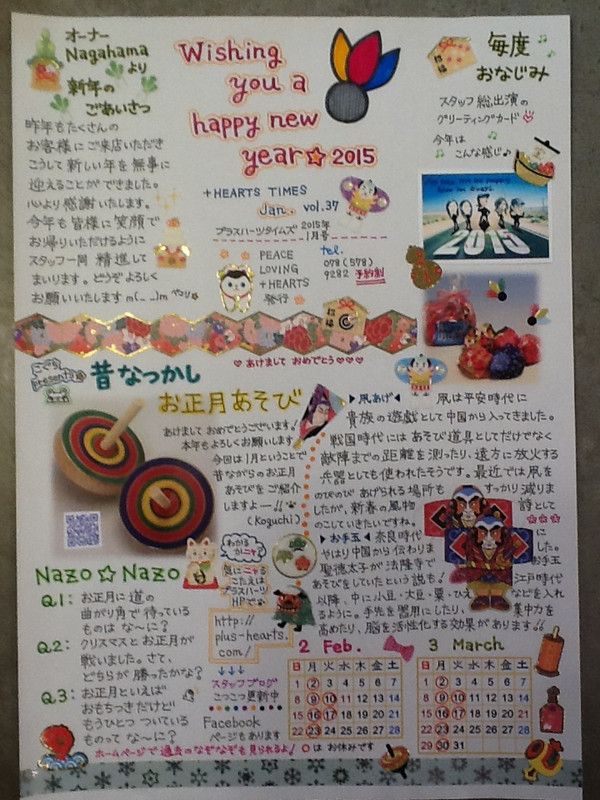 オーナー
Nagahama
より
新年の
ごあいさつ
昨年もたくさんの
お客様にご来店いただき
こうして新しい年を無事に
迎えることができました。
心より感謝いたします。
今年も皆様に笑顔で
お帰りいただけるように
スタッフ一同 精進して
まいります。どうぞよろしく
お願いいたします m(_ _)m
Wishing
you a
happy new
year☆2015
+HEARTS TIMES
Jan. vol.37
プラスハーツタイムズ 2015年
1月号
PEACE
LOVING
+HEARTS
発行
tel.
078(578)
9282 予約制
毎度
おなじみ
スタッフ総出演の
グリーティングカード
今年は
こんな感じ♪
2015
♡あけまして おめでとう♡♡♡
こぐち
presents
昔なつかし
お正月あそび
あけましておめでとうございます!
本年もよろしくお願いします
今回は1月ということで
昔ながらのお正月
あそびをご紹介
しますよー!!
(Koguchi)
▶凧あげ◀ 凧は平安時代に
貴族の遊戯として中国から入ってきました。
戦国時代にはあそび道具としてだけでなく
敵陣までの距離を測ったり、遠方に放火する
兵器としても使われたそうです。最近では凧を
のびのび あげられる場所も すっかり減りま
したが、新春の風物 詩として
のこしていきたいですね。
▶お手玉◀ 奈良時代 に
やはり中国から伝わりま した。
聖徳太子が法隆寺で お手玉
あそびをしていたという説も! 江戸時代
以降、中に小豆・大豆・粟・ひえ などを入れ
るように。手先を器用にしたり、 集中力を
高めたり、脳を活性化する効果があります!!
Nazo☆Nazo
Q1: お正月に道の
曲がり角で待っている
ものは な〜に?
Q2: クリスマスとお正月が
戦いました。さて、
どちらが勝ったかな?
Q3: お正月といえば
おもちつきだけど
もうひとつ ついている
ものって な〜に?
わかる
かニャ?
気にニャる
こたえは
プラスハーツ
HPで
http://
plus-hearts.
com/
↓↓↓
スタッフブログ
こつこつ更新中
Facebook
ページもあります
ホームページで過去のなぞなぞも見られるよ!
2 Feb.
日 月 火 水 木 金 土
1 2 3 4 5 6 7
8 9 10 11 12 13 14
15 16 17 18 19 20 21
22 23 24 25 26 27 28
3 March
日 月 火 水 木 金 土
1 2 3 4 5 6 7
8 9 10 11 12 13 14
15 16 17 18 19 20 21
22 23 24 25 26 27 28
29 30 31
○はお休みです